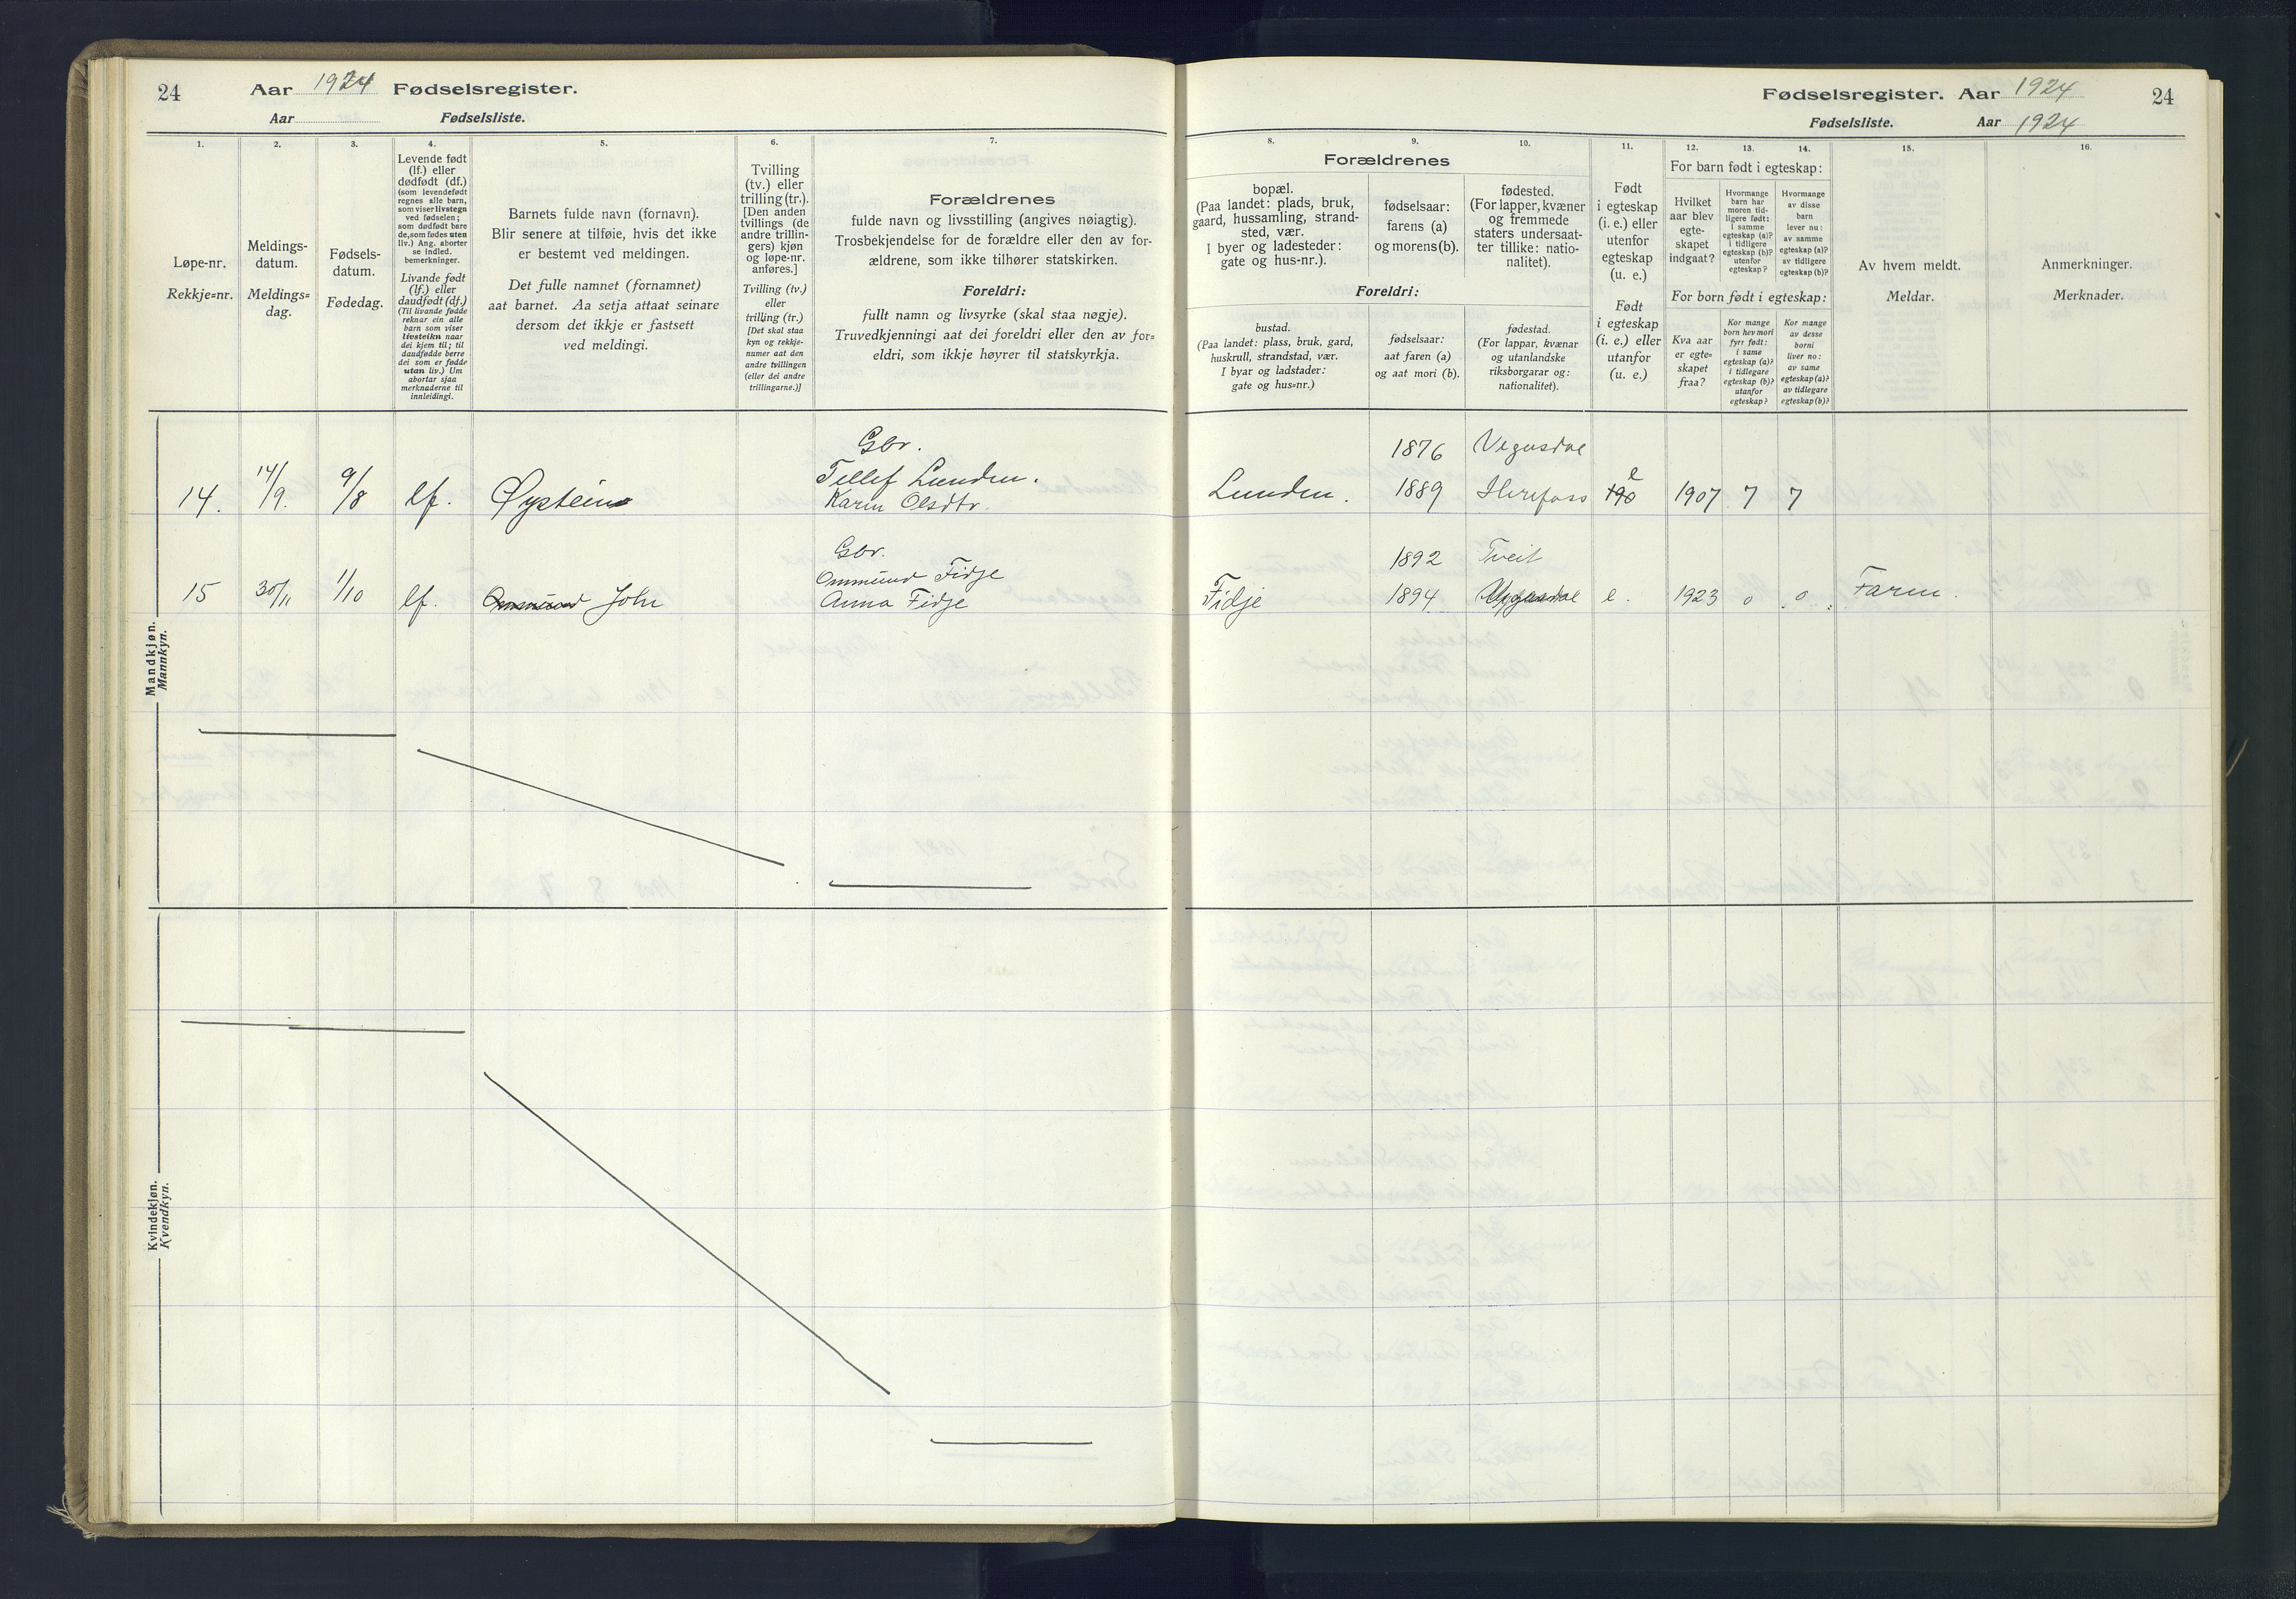 24
Aar 1924 Fødselsregister.
Aar Fødselsliste.
1.
2.
3.
4.
5.
6.
7.
Løpe-nr.
Rekkje=nr.
Meldings-
datum.
Meldings=
dag.
Fødsels-
datum.
Fødedag.
Levende født
(lf.) eller
dødfødt (df.)
(som levendefødt
regnes alle barn,
som viser livstegn
ved fødselen;
som dødfødt bare
de, som fødes uten
liv.) Ang. aborter
se indled.
bemerkninger.
Livande født
(lf.) eller
daudfødt (df.)
(Til livande fødde
reknar ein alle
barn som viser
livsteikn naar
dei kjem til; til
daudfødde berre
dei som er fødde
utan liv.) Um
abortar sjaa
merknaderne til
innleidingi.
Barnets fulde navn (fornavn).
Blir senere at tilføie, hvis det ikke
er bestemt ved meldingen.
Det fulle namnet (fornamnet)
aat barnet. Aa setja attaat seinare
dersom det ikkje er fastsett
ved meldingi.
Tvilling
(tv.) eller
trilling (tr.).
[Den anden
tvillings (de
andre trillin-
gers) kjøn
og løpe-nr.
anføres.]
Tvilling (tv.)
eller
trilling (tr.)
[Det skal staa
kyn og rekkje-
numer aat den
andre tvillingen
(eller dei andre
trillingarne.)]
Forældrenes
fulde navn og livsstilling (angives nøiagtig).
Trosbekjendelse for de forældre eller den av for-
ældrene, som ikke tilhører statskirken.
Foreldri:
fullt namn og livsyrke (skal staa nøgje).
Truvedkjenningi aat dei foreldri eller den av for=
eldri, som ikkje høyrer til statskyrkja.
Mandkjøn.
Mannkyn.
14. 14/9. 9/8 lf. Øystein
Gbr.
Tellef Lunden.
Karin Olsdtr.
15 30/11 1/10 lf. Ommund John
Gbr.
Ommund Fidje
Anna Fidje
Kvindekjøn.
Kvendkyn.
Fødselsregister. Aar 1924
24
Fødselsliste. Aar 1924
8.
9.
10.
11.
12.
13.
14.
15.
16.
Forældrenes
bopæl.
(Paa landet: plads, bruk,
gaard, hussamling, strand-
sted, vær.
I byer og ladesteder:
gate og hus-nr.).
fødselsaar:
farens (a)
og morens (b).
fødested.
(For lapper, kvæner
og fremmede
staters undersaat-
ter tillike: natio-
nalitet).
Foreldri:
bustad.
(Paa landet: plass, bruk, gard,
huskrull, strandstad, vær.
I byar og ladstader:
gate og hus=nr.)
fødselsaar:
aat faren (a)
og aat mori (b).
fødestad.
(For lappar, kvænar
og utanlandske
riksborgarar og:
nationalitet).
Født
i egteskap
(i. e.) eller
utenfor
egteskap
(u. e.)
Født
i egteskap
(i. e.) eller
utanfor
(u. e.)
For barn født i egteskap:
Hvilket
aar blev
egte-
skapet
indgaat?
Hvormange
barn har
moren tid-
ligere født:
i samme
egteskap (a)?
i tidligere
egteskap (b)?
utenfor
egteskap?
Hvormange
av disse
barn
lever nu:
av samme
egteskap (a)?
av tidligere
egteskap (b)?
For born født i egteskap:
Kva aar
er egte=
skapet
fraa?
Kor mange
born hev mori
fyrr født:
i same
egteskap (a)?
i tidlegare
egteskap (b)?
utanfor
egteskap?
Kor mange
av desse
borni
liver no:
av same
egteskap (a)?
av tidlegare
egteskap (b)?
Av hvem meldt.
Meldar.
Anmerkninger.
Merknader.
1876 Vegusdal
Lunden. 1889 Herefoss e 1907 7 7
1892 Tveit
Fidje 1894 Vegusdal e. 1923 0 0 Faren.